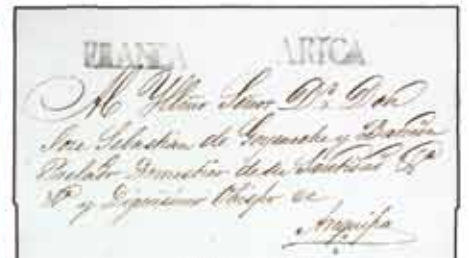 FRANCA ARICA
Al Yllmo Señor Dr. Don
Jose Sebastian de Goyeneche y Barreda
Prelado Domestico de su Santidad &a
&a y Dignisimo Obispo de
Arequipa